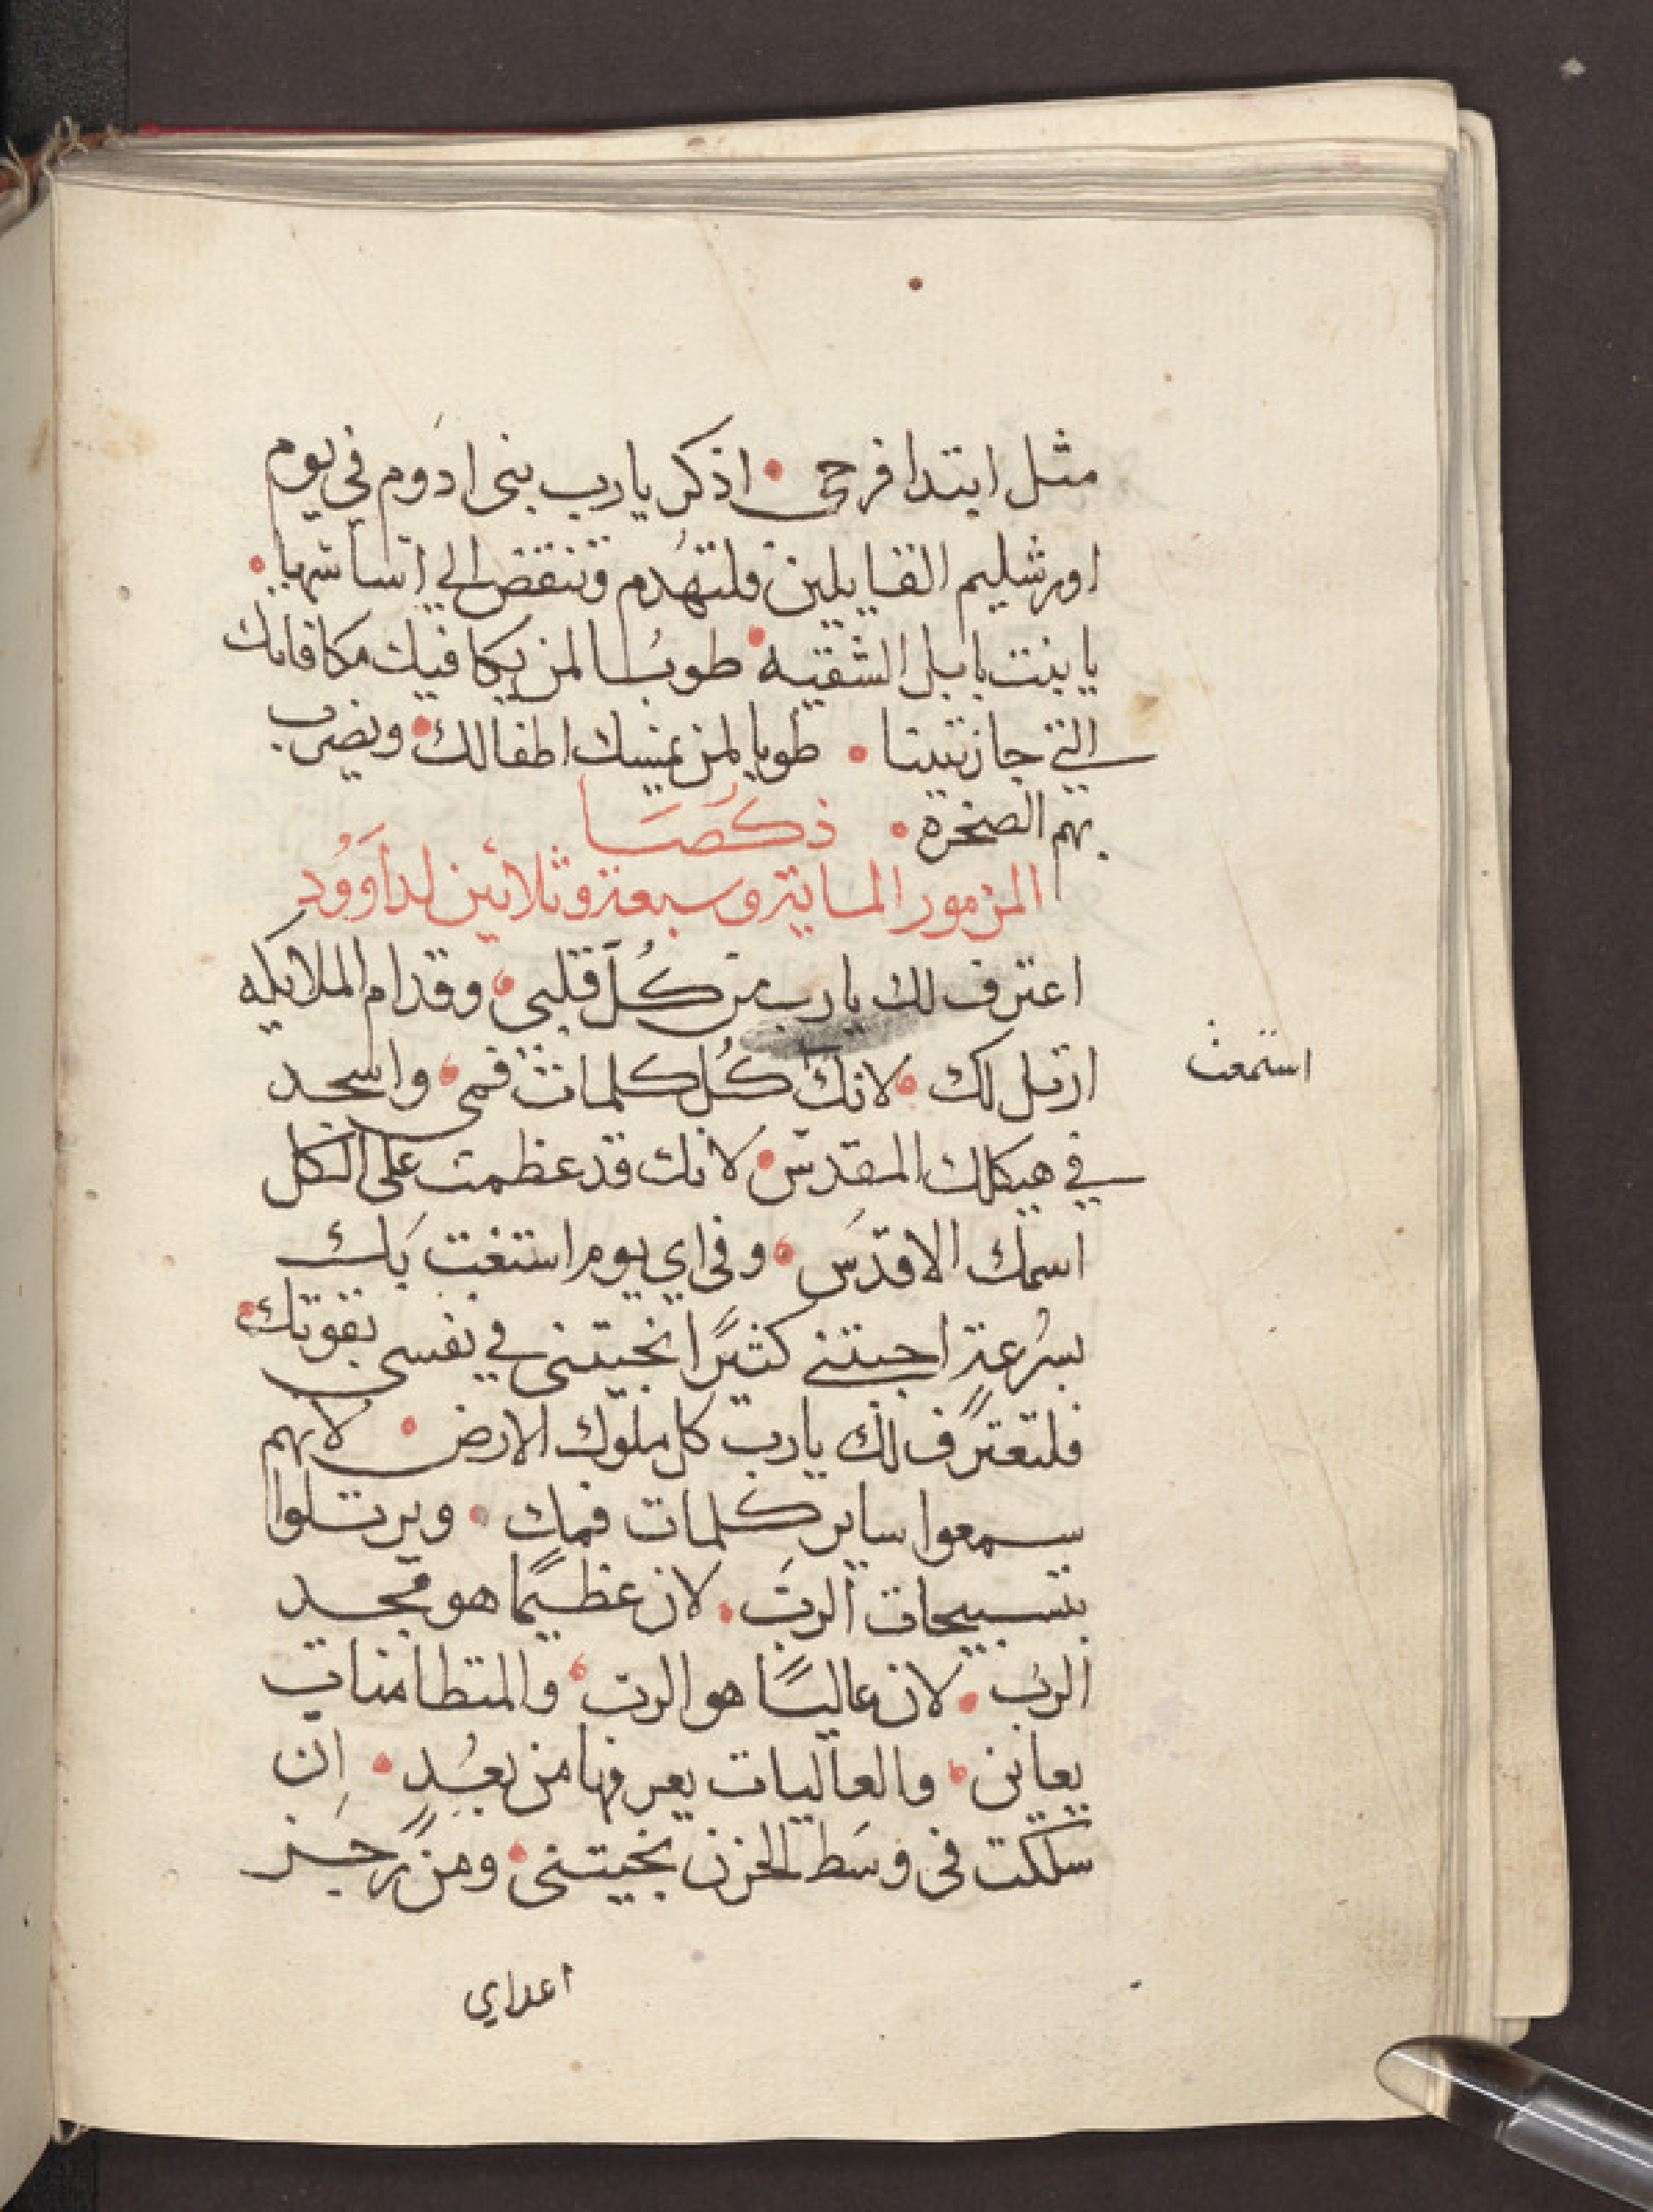 مثل ابتدا فرحي • اذكر يا رب بني ادوم في يوم
اورشليم القايلين فلتهدم وتنقض الى اساساتها •
يا بنت بابل الشقيه • طوبا لمن يكافيك مكافاتك
التي جازيتينا • طوبا لمن يمسك اطفالك • ويضرب
بهم الصخرة • ذكصا
المزمور الماية وسبعة وثلاثين لداوود
اعترف لك يا رب من كل قلبي • وقدام الملايكه
ارتل لك • لانك كل كلمات فمي • واسجد
استمعت
في هيكلك المقدس • لانك قد عظمت على الكل
اسمك الاقدس • وفي اي يوم استغت بك
بسرعة اجبتني كثيرًا انجيتني في نفسي بقوتك •
فلتعترف لك يا رب كل ملوك الارض • لانهم
سمعوا ساير كلمات فمك • ويرتلوا
بتسبيحات الرب • لان عظيمًا هو مجد
الرب • لان عاليًا هو الرب • والمتطامنات
يعاين • والعاليات يعرفها من بعُدٍ • اِن
سلكت في وسط الحزن نجيتني • ومن رجز
اعداي